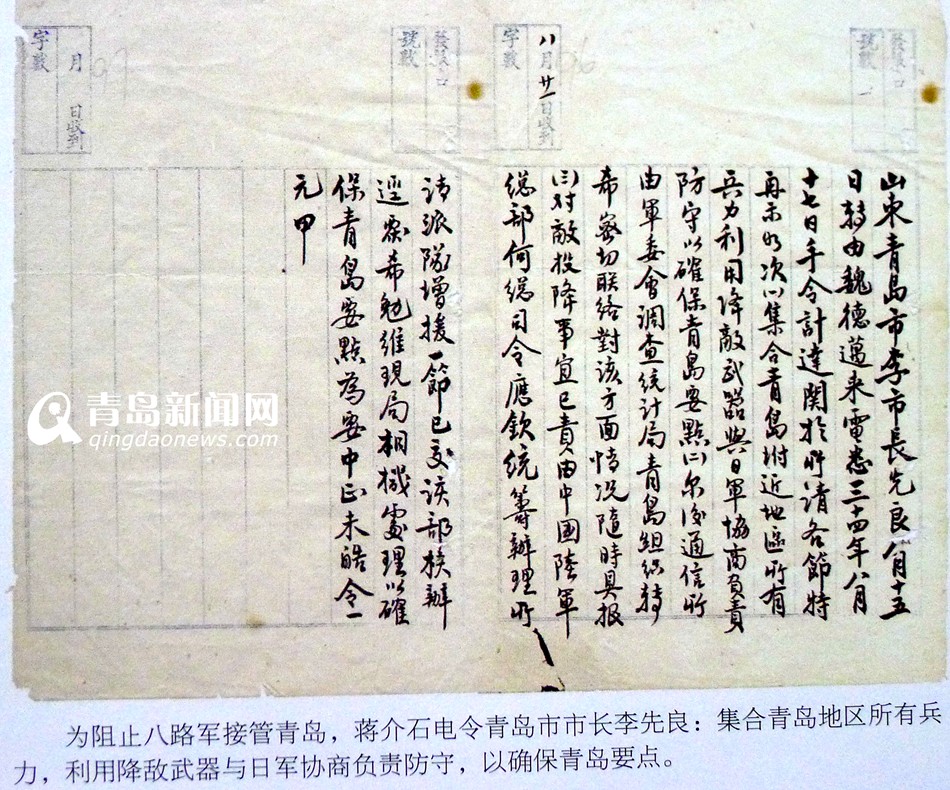 發報人
號數
八月廿一日收到
字數
發報人
號數
月 日收到
字數
山東青島市李市長先良八月十五
日轉由魏德邁来電悉三十四年八月
十七日手令計達関於所請各節特
再示如次㈠集合青島附近地區所有
兵力利用降敵武器與日軍協商負責
防守以確保青島要點㈡尔後通信所
由軍委會調查統計局青島組织轉
希密切联络對該方面情况隨時具报
㈢对敵投降事宜已責由中國陸軍
總部何總司令應欽統籌辦理所
請派隊增援一節已交該部核辦
逕覆希勉維現局相機處理以確
保青島要點為要中正未皓令一
元甲
青岛新闻网
qingdaonews.com
为阻止八路军接管青岛，蒋介石电令青岛市市长李先良：集合青岛地区所有兵
力，利用降敌武器与日军协商负责防守，以确保青岛要点。